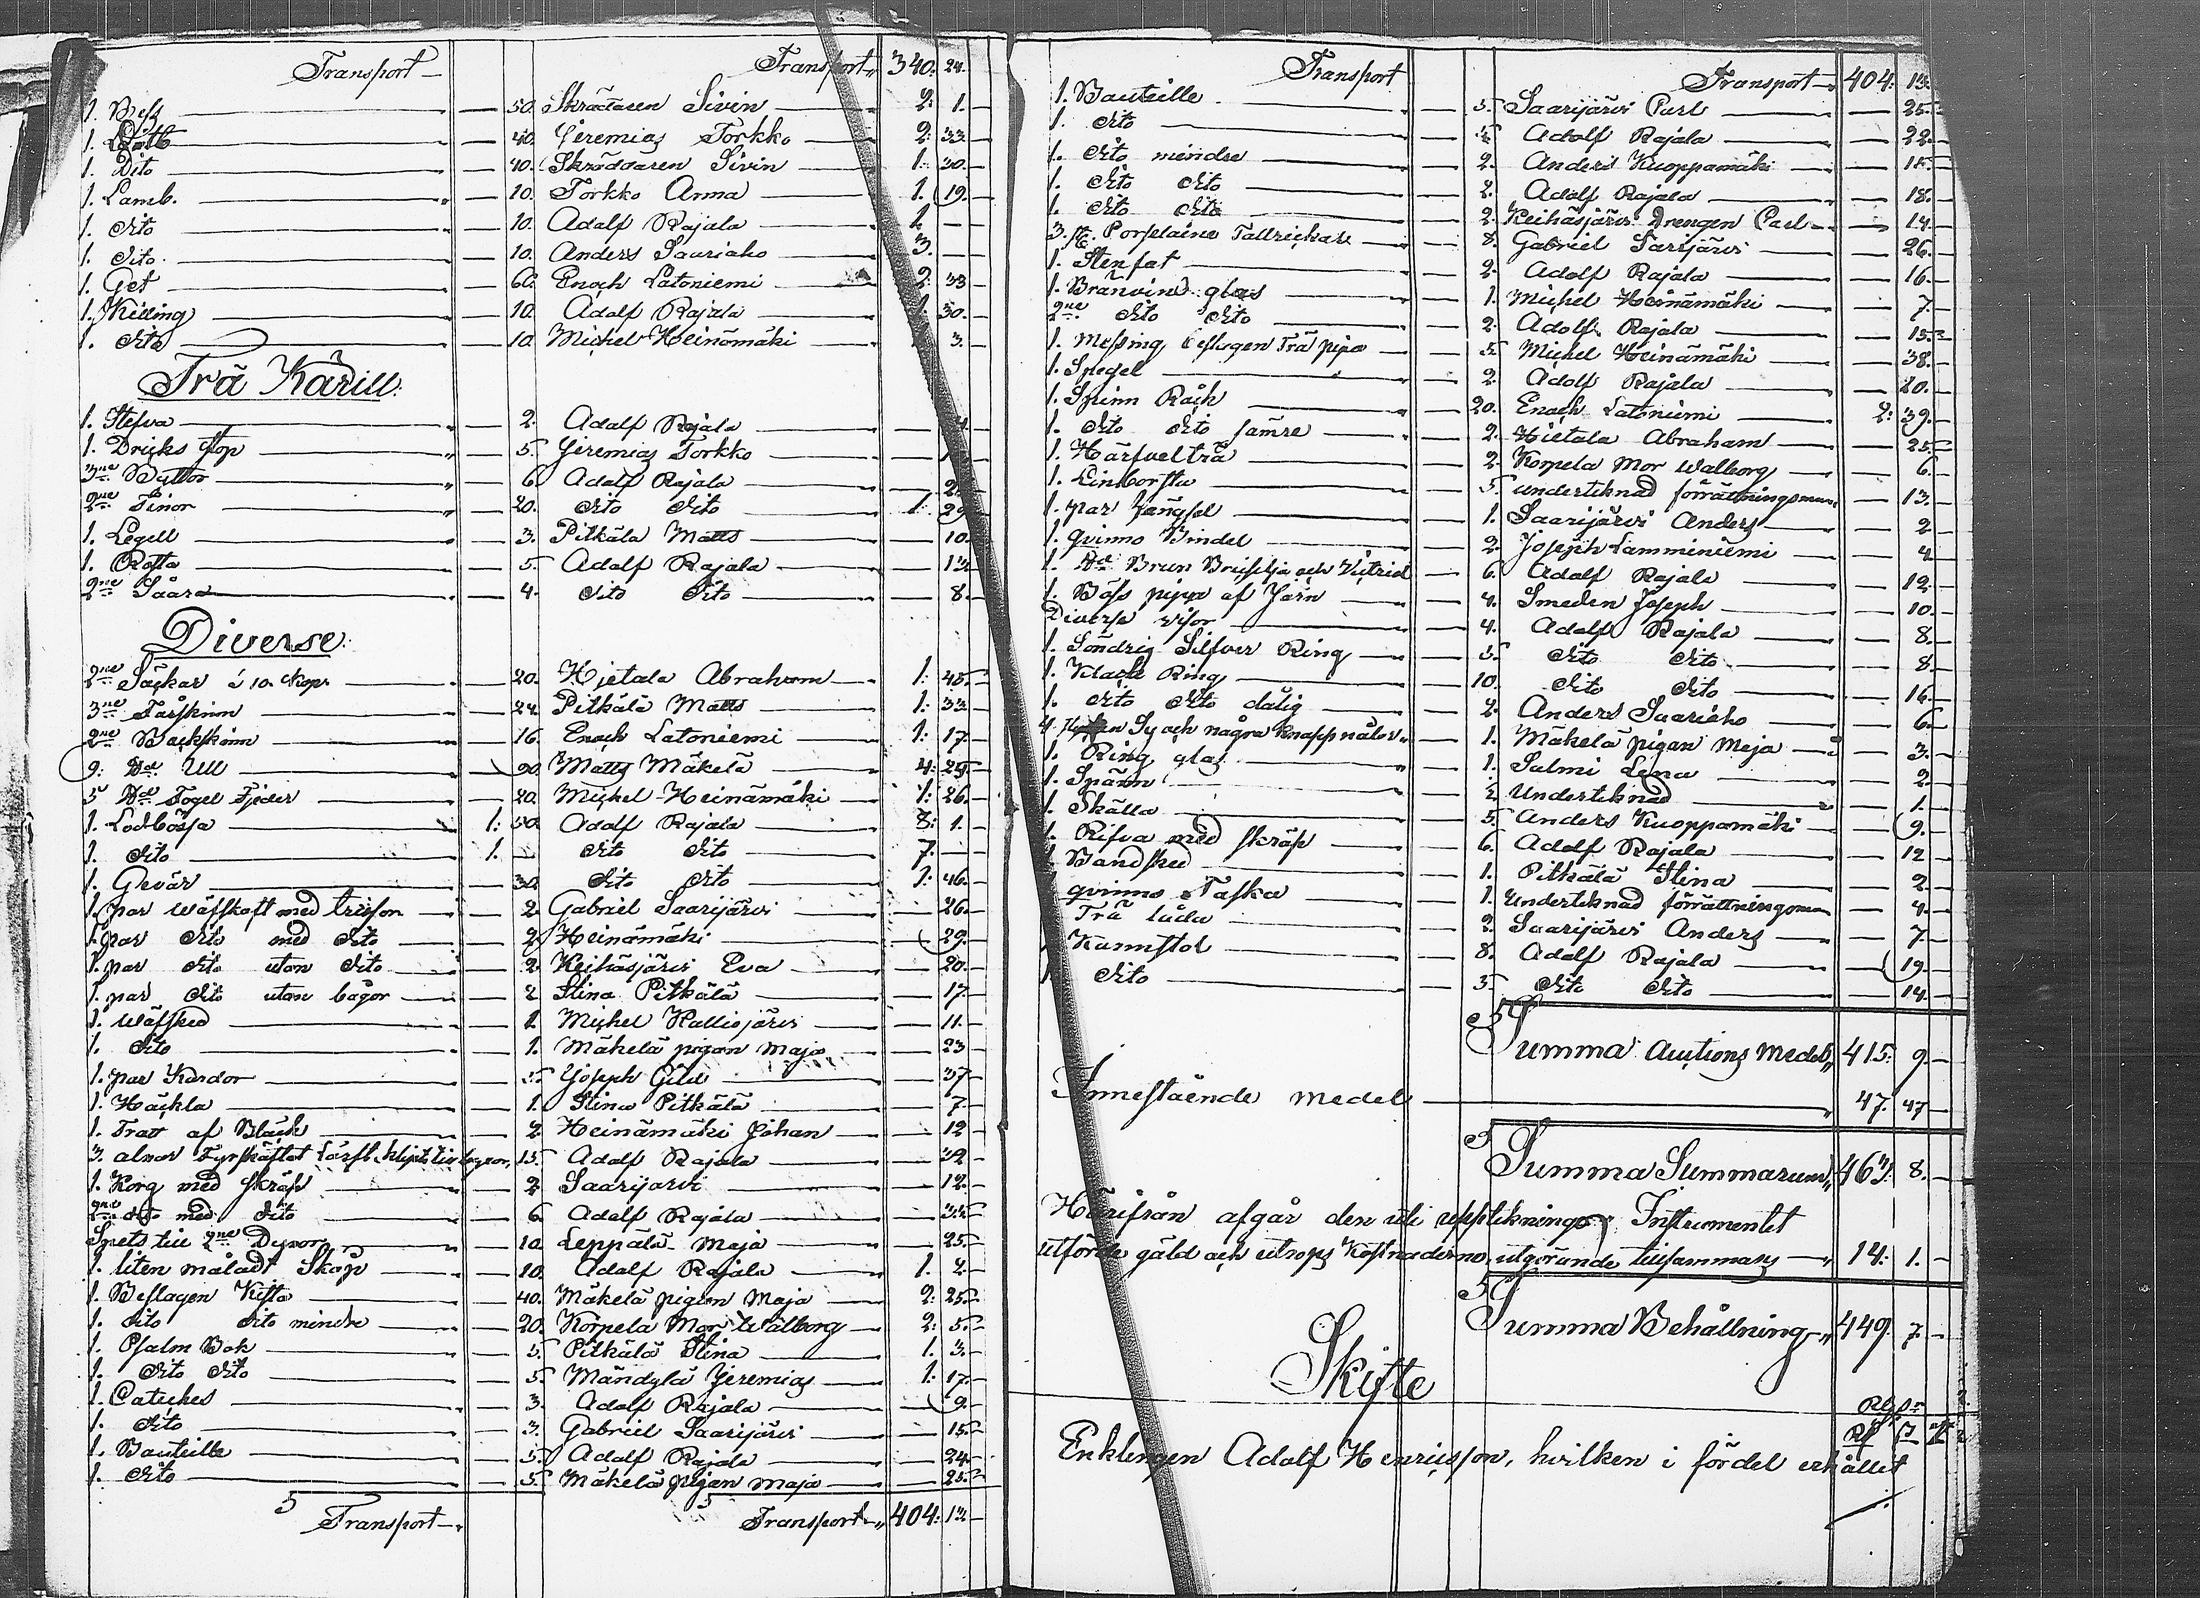 Transport — Transport 340. 24.
1. — 50. Skräddaren Sivin — 2. 1. —
1. — 40. Jeremias Torkko — 2. 33. —
1. Dito — 40. Skräddaren Sivin — 1. 30. —
1. Lamb. — 10. Torkko Anna — 1. 19. —
1. dito — 10. Adolf Rajala 1. — —
1. dito — 10. Anders Saariaho 3. — —
1. Get — 60. Enoch Latoniemi — 2. 33
1. Killing — 10. Adolf Rajala — 1. 30. —
1. dito — 10. Michel Heinämäki — 3. —
Trä Kärill.
1. Stefva — 2. Adolf Rajala —
1. Dricks stop — 5. Jeremias Torkko —
3ne Byttor — 6. Adolf Rajala —
2ne Tinor — 20. dito dito — 1. 29
1. Legell — 3. Pitkälä Matts — 10. —
1. — 5. Adolf Rajala —
2ne Såar — 4. dito dito — 8. —
Diverse:
2ne Säckar à 10. Kop. — 20. Hietala Abraham — 1. 45. —
3ne Fårskinn — 24. Pitkälä Matts — 1. 33. —
2ne Bockskinn — 16. Enoch Latoniemi — 1. 17. —
9. ℔d Ull — 90. Matts Mäkelä — 4. 25. —
5 ℔d Fogel Fjeder — 20. Michel Heinämäki — 1. 26. —
1. Lodbössa — 1. 50. Adolf Rajala — 8. 1. —
1. dito — 1. — dito dito — 7. — —
1. Gevär — 30. dito dito — 1. 46. —
1. par Wäfskaft med trissor — 2. Gabriel Saarijärvi — 26. —
1. par dito med dito — 2. Heinämäki — 29. —
1. par dito utan dito — 2. Keihäsjärvi Eva — 20. —
1. par dito utan bågor — 2. Stina Pitkälä — 17. —
1. Wäfsked — 1. Michel Kalliojärvi — 11. —
1. dito — 1. Mäkelä pigan Maja — 23 —
1. par Kardor — 5. Joseph — 37 —
1. Häckla — 1. Stina Pitkälä — 7 —
1. Tratt af Bläck — 2. Heinämäki Johan — 12 —
3. alnar Fyrskäftat Lärft — 15. Adolf Rajala — 32 —
1. Korg med skräp — 2. Saarijärvi — 12. —
2ne dito med dito — 6. Adolf Rajala —
till 2ne Dynor — 10. Leppälä Maja — 25. —
1. liten måladt Skåp — 10. Adolf Rajala — 1. 2. —
1. Beslagen Kista — 40. Mäkelä pigan Maja — 2. 25. —
1. dito dito mindre — 20. Korpela Mor Walborg — 2. 5. —
1. Psalm Bok — 5. Pitkälä Stina — 1. 3. —
1. dito dito — 5. Mändylä Jeremias — 1. 17. —
1. Catiches — 3. Adolf Rajala — 9. —
1. dito — 3. Gabriel Saarijärvi — 15. —
1. Bouteille — 5. Adolf Rajala — 24. —
1. dito — 5. Mäkelä pigan Maja — 25. —
Transport — Transport — 404.
Transport Transport — 404.
1. Bouteille — 5. Saarijärvi Carl — 25. —
1. dito — Adolf Rajala — 22. —
1. dito mindre — 2. Anders Kuoppamäki —
1. dito dito — 2. Adolf Rajala — 18. —
1. dito dito — 2. Keihäsjärvi Drengen Carl — 14. —
3. st. Porslaine Tallrickar — 8. Gabriel Sarijärvi — 26. —
1. Stenfat — 2. Adolf Rajala — 16. —
1. Bränvins glas — 1. Michel Heinämäki — 7. —
2ne dito dito — 2. Adolf Rajala —
1. Messing beslagen Trä pipa — 5. Michel Heinämäki — 38. —
1. Spegel — 2. Adolf Rajala —
1. Spinn Råck — 20. Enoch Latoniemi — 2. 39. —
1. dito dito sämre — 2. Hietala Abraham — 25. —
1. Härfvelträ — 2. Korpela Mor Walborg — 6. —
1. Linborsta — 5. undertecknad förrättningsman — 13. —
1. par — 1. Saarijärvi Anders — 2 —
1. qvinno Bindel — 2. Joseph Lamminiemi — 4 —
1. ℔d Brun och Victriol — 6. Adolf Rajala — 12 —
1. Böss pipa af Järn — 4. Smeden Joseph — 10. —
Diverse — 4. Adolf Rajala — 8. —
1. Söndrig Silfver Ring — 5. dito dito — 8. —
1. Ring — 10. dito dito — 16. —
1. dito dito dålig — 2. Anders Saariaho — 6. —
4 Sy och några Knappnålar — 1. Mäkelä pigan Maja — 3. —
1. Ring glas — 1. Salmi Lena — 2. —
1. Spänn — 2. Undertecknad — 1. —
1. Skälla — 5. Anders Kuoppamäki — 9. —
1. med skräp — 6. Adolf Rajala — 12 —
1. Bandsked — 1. Pitkälä Stina — 2. —
qvinno Taska — 1. Undertecknad förrättningsman — 4. —
Trä låda — 2. Saarijärvi Anders — 7. —
Karmstol — 8. Adolf Rajala — 19. —
1. dito — 5. dito dito — 14. —
Summa Auctions Medel, 415. 9. —
Innestående medel — 47. 47 —
Summa Summarum, 8. —
Härifrån afgår den uti upptecknings Instrumentet
utförde gäld och utrops kostnaderne, utgörande tillsammans — 14. 1. —
Summa Behållning — 449. 7. —
Skifte
Enklingen Adolf Henricsson, hvilken i fördel erhållit